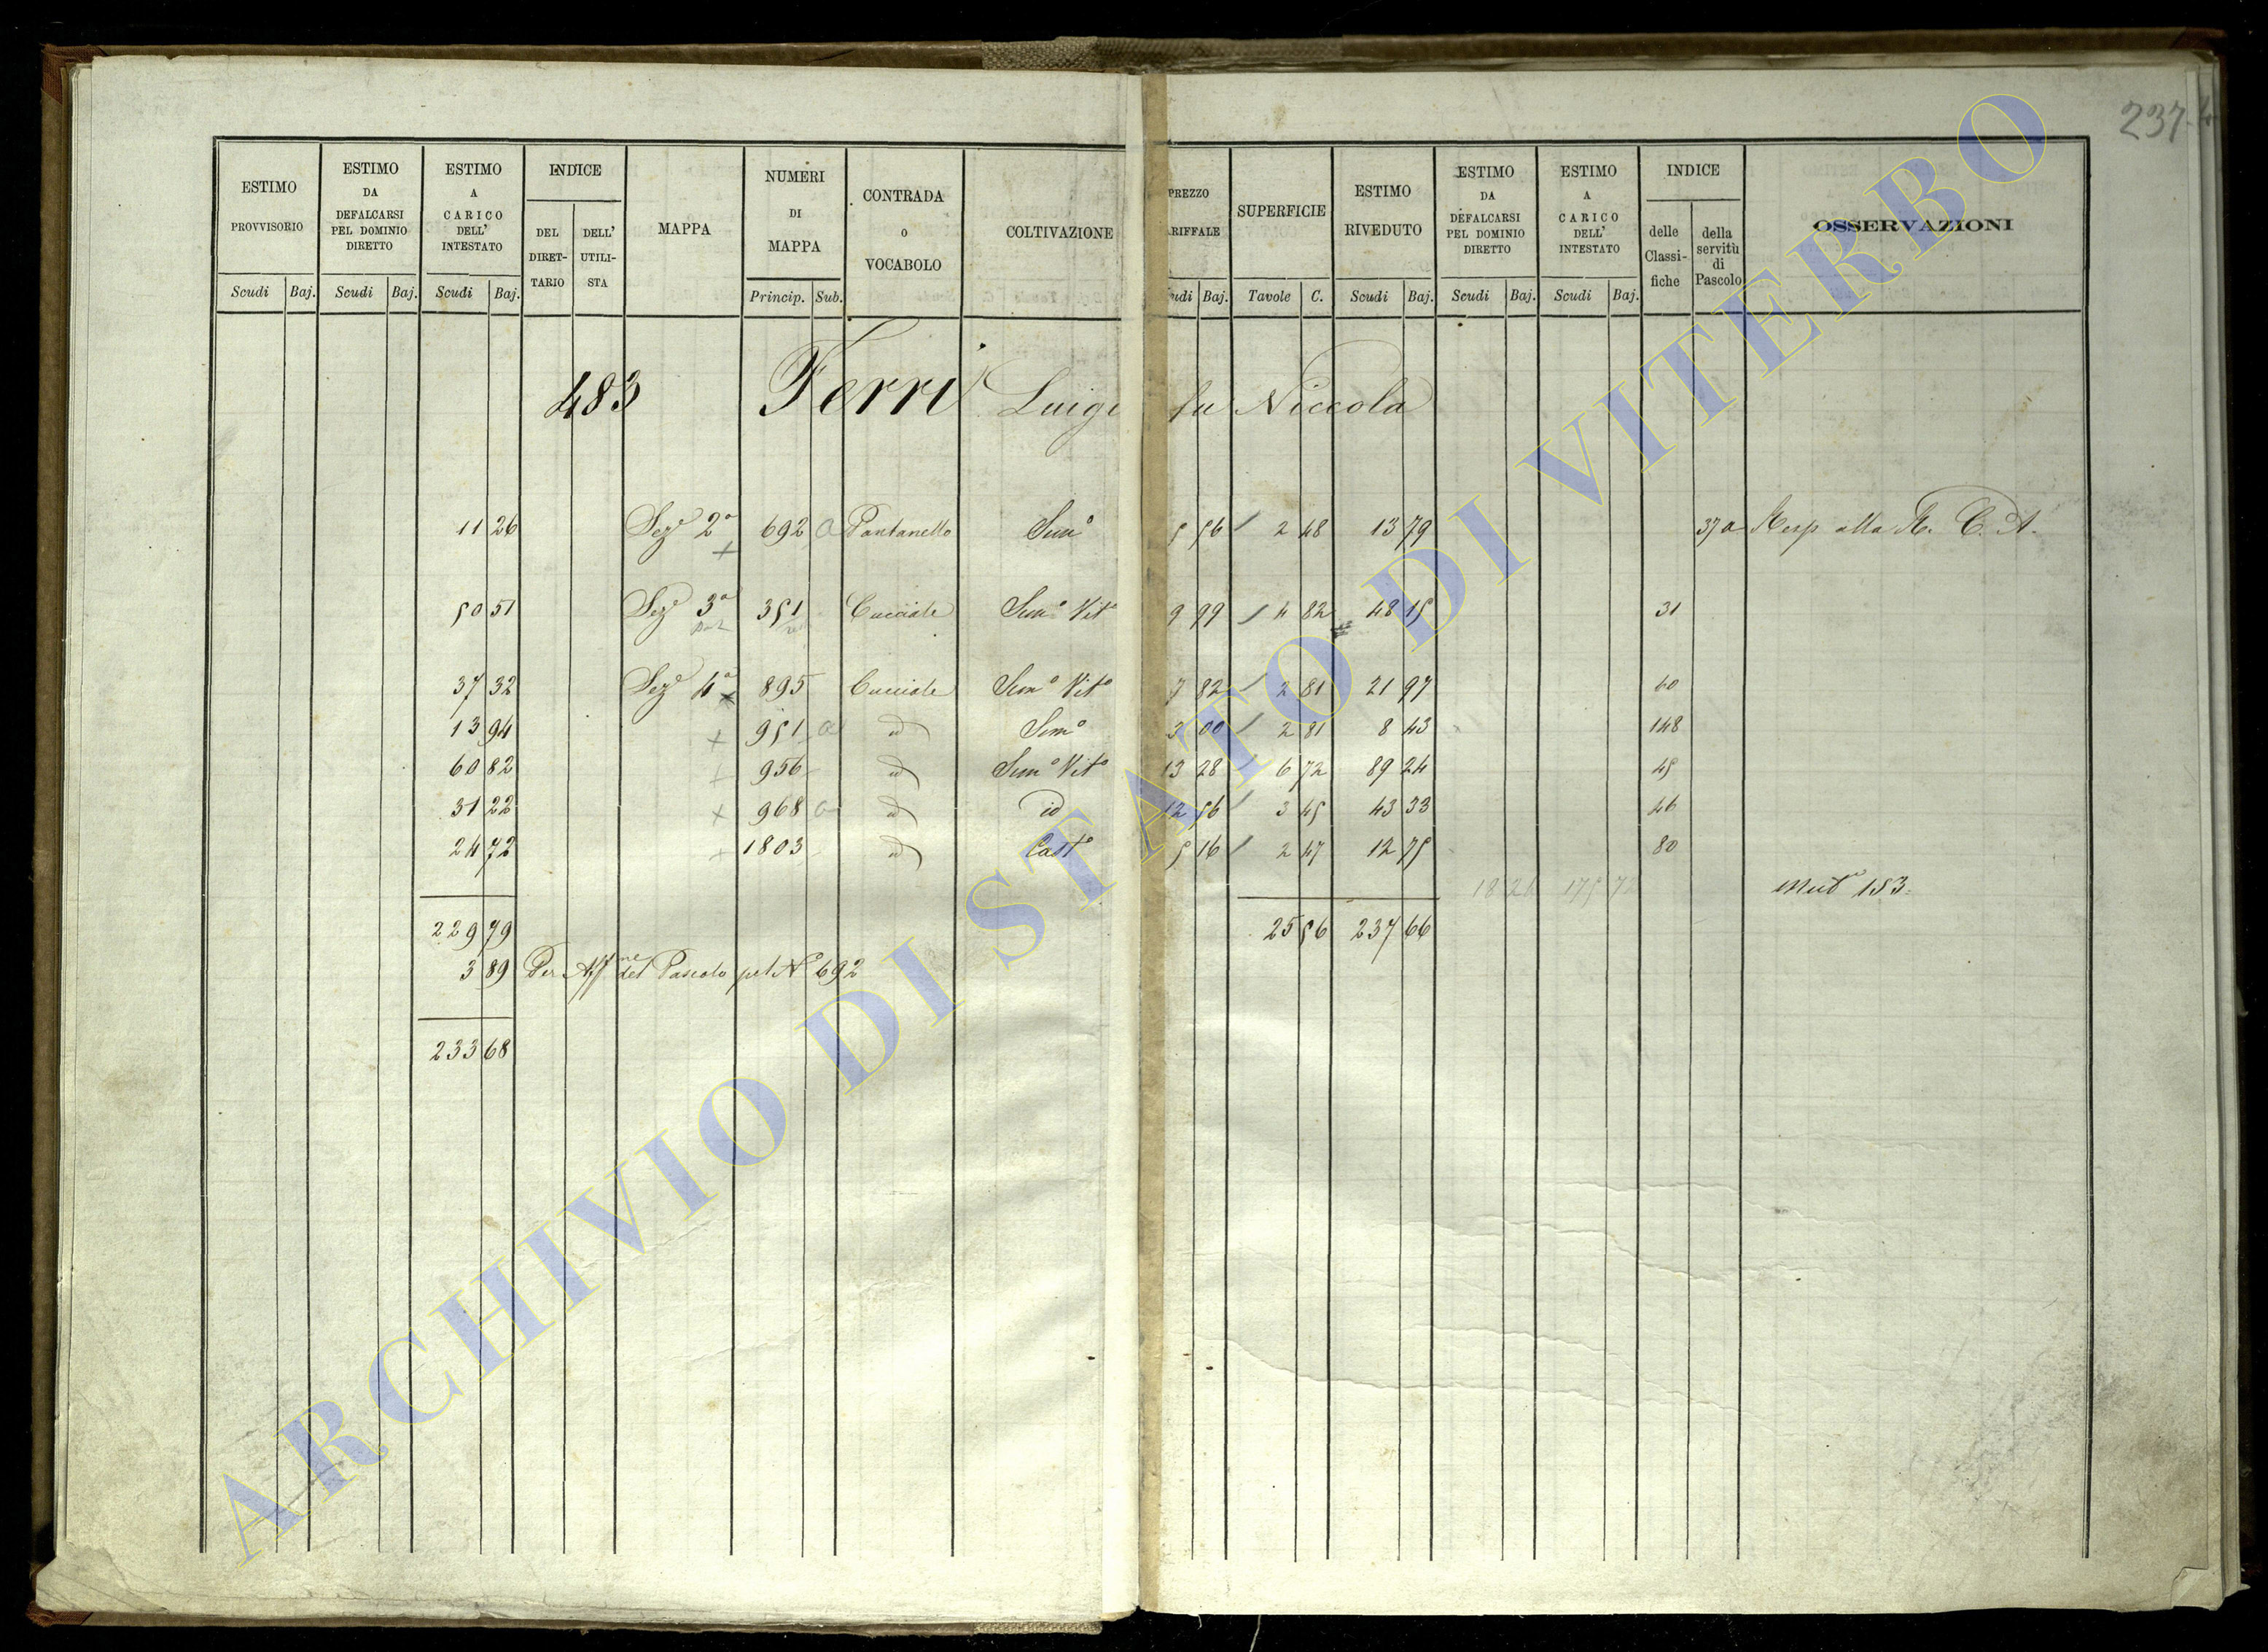 237
ESTIMO PROVVISORIO | ESTIMO DA DEFALCARSI PEL DOMINIO DIRETTO | ESTIMO A CARICO DELL' INTESTATO | INDICE DEL DIRETTARIO | DELL' UTILISTA | MAPPA | NUMERI DI MAPPA | CONTRADA O VOCABOLO | COLTIVAZIONE | PREZZO RIFFALE | SUPERFICIE | ESTIMO RIVEDUTO | ESTIMO DA DEFALCARSI PEL DOMINIO DIRETTO | ESTIMO A CARICO DELL' INTESTATO | INDICE delle Classifiche | della servitù di Pascolo | OSSERVAZIONI
Scudi Baj. Scudi Baj. Scudi Baj. Princip. Sub. udi Baj. Tavole C. Scudi Baj. Scudi Baj. Scudi Baj.
483 Ferri Luigi fu Niccola
11 26 Sez.e 2a 692 a Pantanello Semo 5 56 2 48 13 79 37 a Resp alla R. C. A.
50 51 Sez.e 3a 351 Cucciale Semo Vito 9 99 4 82 48 15 31
37 32 Sez.e 4a 895 Cucciale Semo Vito 7 82 2 81 21 97 60
13 94 951 a id Semo 3 00 2 81 8 43 148
60 82 956 id Semo Vito 13 28 6 72 89 24 45
31 22 968 a id id 12 56 3 45 43 33 46
24 72 1803 id Casto 5 16 2 47 12 75 80
Muta 153
229 79 25 56 237 66
3 89 Per Aff.ne del Pascolo pel No 692
233 68
ARCHIVIO DI STATO DI VITERBO